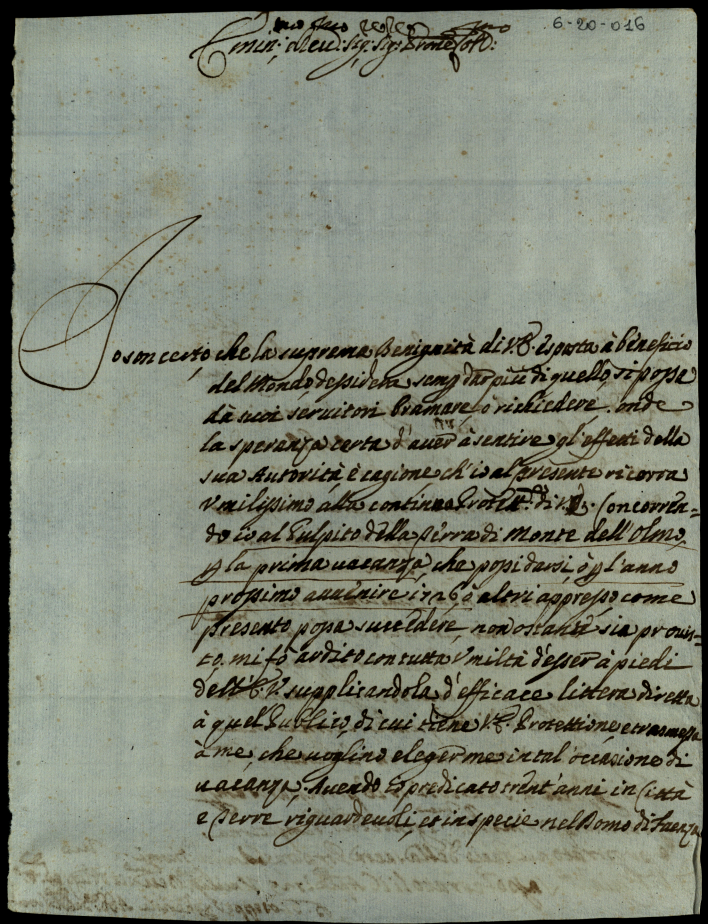 6-20-016
Emin: e Reu: Sig: Sig: Prone Col:
Io son certo che la suprema Benignità di V.E. esposta à beneficio
del Mondo, dessidera semp dar più di quello, si possa
dà suoi servitori bramare, ò richiedere. onde
la speranza certa d'auer à sentire gl'effetti della
sua Autorità è cagione, ch'io al presente ricorra
Vmilissimo alla continua di V.E. Concorren-
do io al Pulpito della Terra di Monte dell'Olmo,
p la prima uacanza, che possi darsi, ò p l'anno
prossimo auuenire 1726 ò altri appresso come
presento possa succedere, non ostante sia prouis-
to, mi fò ardito con tutta Vmiltà d'esser à piedi
dell'E.V. supplicandola d'efficace littera diretta
à quel Publico, di cui tiene V.E. Protettione e trasmessa
à me, che uoglino elegerme in tal occasione di
uacanza. Auendo io predicato trent'anni in Città
e Terre riguardeuoli, et in specie nel Domo di Faenza